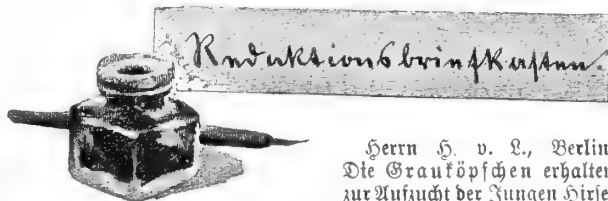 Redaktionsbriefkasten.
Herrn H. v. L., Berlin
Die Grauköpfchen erhalten
zur Aufzucht der Jungen Hirse